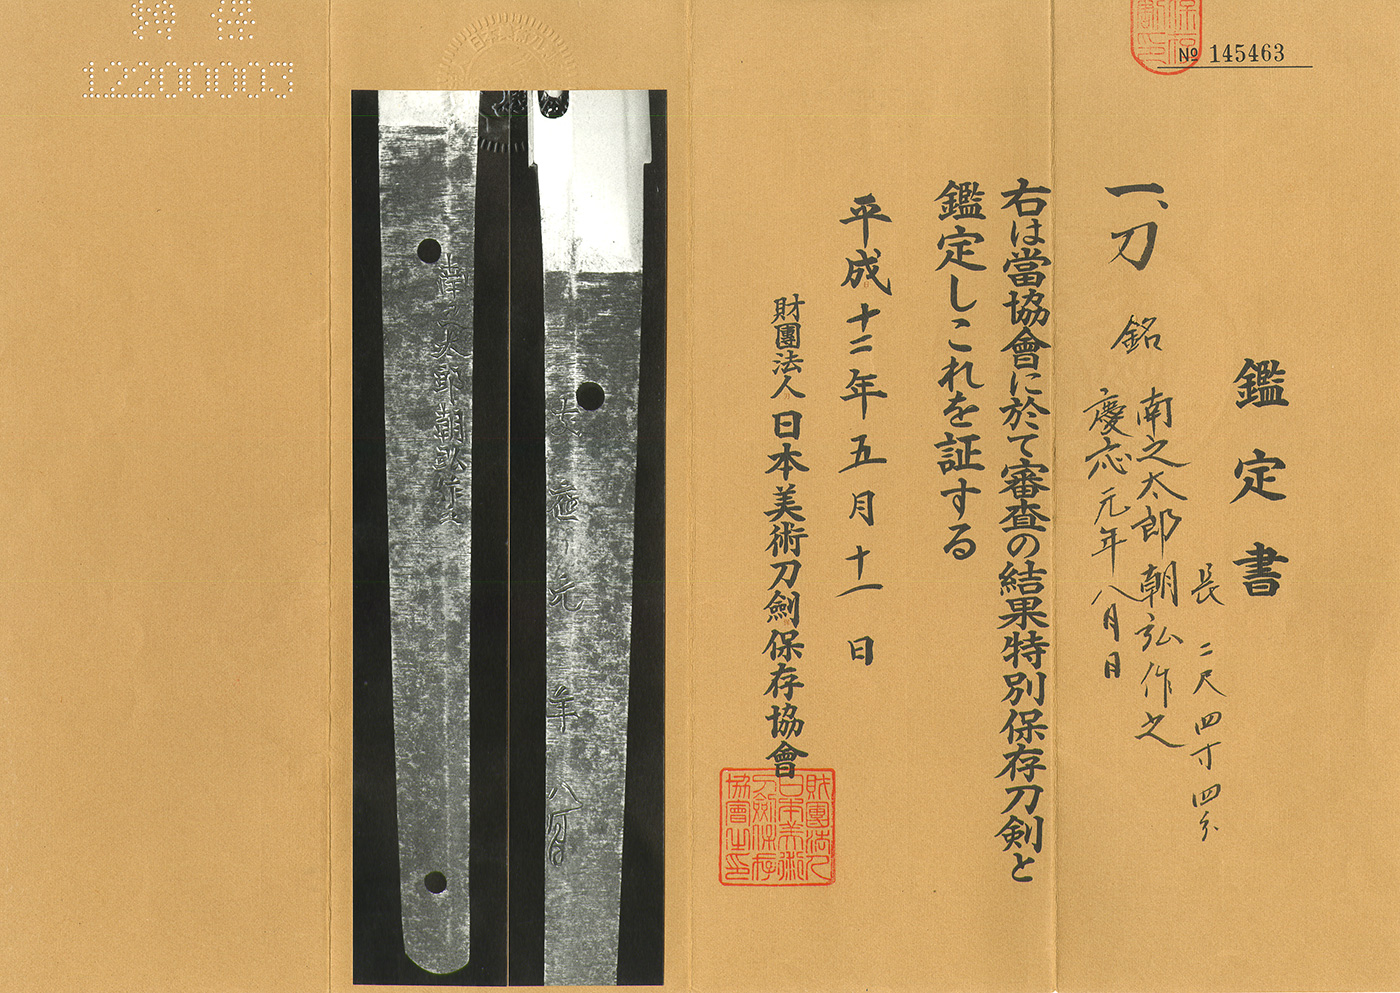 № 145463
鑑定書
長 二尺四寸四分
一、刀 銘 南之太郎朝弘作之
慶応元年八月日
右は當協會に於て審査の結果特別保存刀剣と
鑑定しこれを証する
平成十二年五月十一日
財團法人 日本美術刀劍保存協會
財團法人
日本美術
刀劍保存
協會之印
南之太郎朝弘作之
慶應元年八月日
12200003